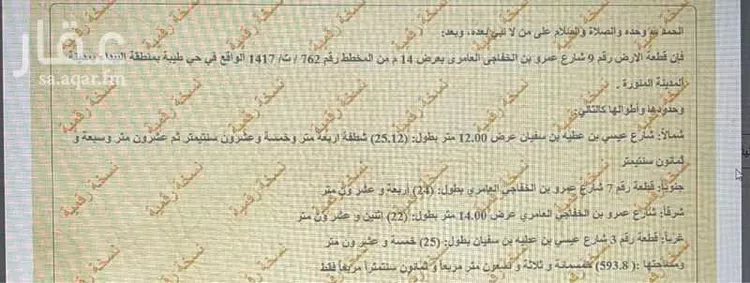 الحمد لله وحده والصلاة والسلام على من لا نبي بعده، وبعد:
فإن قطعة الارض رقم 9 شارع عمرو بن الخفاجي العامري بعرض 14 م من المخطط رقم 762 / ت/ 1417 الواقع في حي طيبة بمنطقة البيداء بمدينة
المدينة المنورة .
وحدودها وأطوالها كالتالي:
شمالاً: شارع عيسي بن عطيه بن سفيان عرض 12.00 متر بطول: (25.12) شطفة اربعة متر وخمسة وعشرون سنتيمتر ثم عشرون متر وسبعة و
ثمانون سنتيمتر
جنوباً: قطعة رقم 7 شارع عمرو بن الخفاجي العامري بطول: (24) أربعة و عشرون متر
شرقاً: شارع عمرو بن الخفاجي العامري عرض 14.00 متر بطول: (22) اثنين و عشرون متر
غرباً: قطعة رقم 3 شارع عيسي بن عطيه بن سفيان بطول: (25) خمسة و عشرون متر
ومساحتها : (593.8) خمسمائة و ثلاثة و تسعون متر مربعاً و ثمانون سنتمتراً مربعاً فقط
عقار
sa.aqar.fm
نسخة رقمية